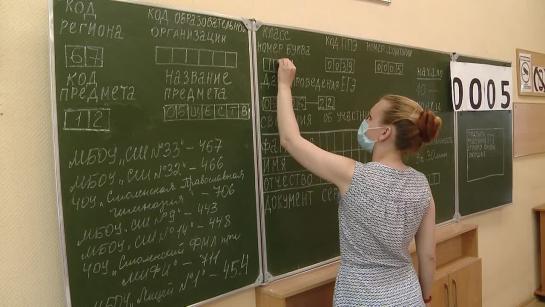 КОД
РЕГИОНА
67
КОД ОБРАЗОВАТЕЛЬНОЙ
ОРГАНИЗАЦИИ
КОД
ПРЕДМЕТА
12
НАЗВАНИЕ
ПРЕДМЕТА
ОБЩЕСТВ
МБОУ „СШ №33" – 467
МБОУ „СШ №32" – 466
ЧОУ „Смоленская Православная
гимназия – 706
МБОУ „СШ №9" – 443
МБОУ „СШ №14" – 448
ЧОУ „Смоленский ФМЛ при
МИФИ" – 711
МБОУ „Лицей №1" – 454
КЛАСС
НОМЕР БУКВА
КОД ППЭ
НОМЕР
0005
ДАТА ПРОВЕДЕНИЯ ЕГЭ
ОБ
ИМЯ
ОТЧЕСТВО
ДОКУМЕНТ СЕР
НАЧАЛО
10
30
0005